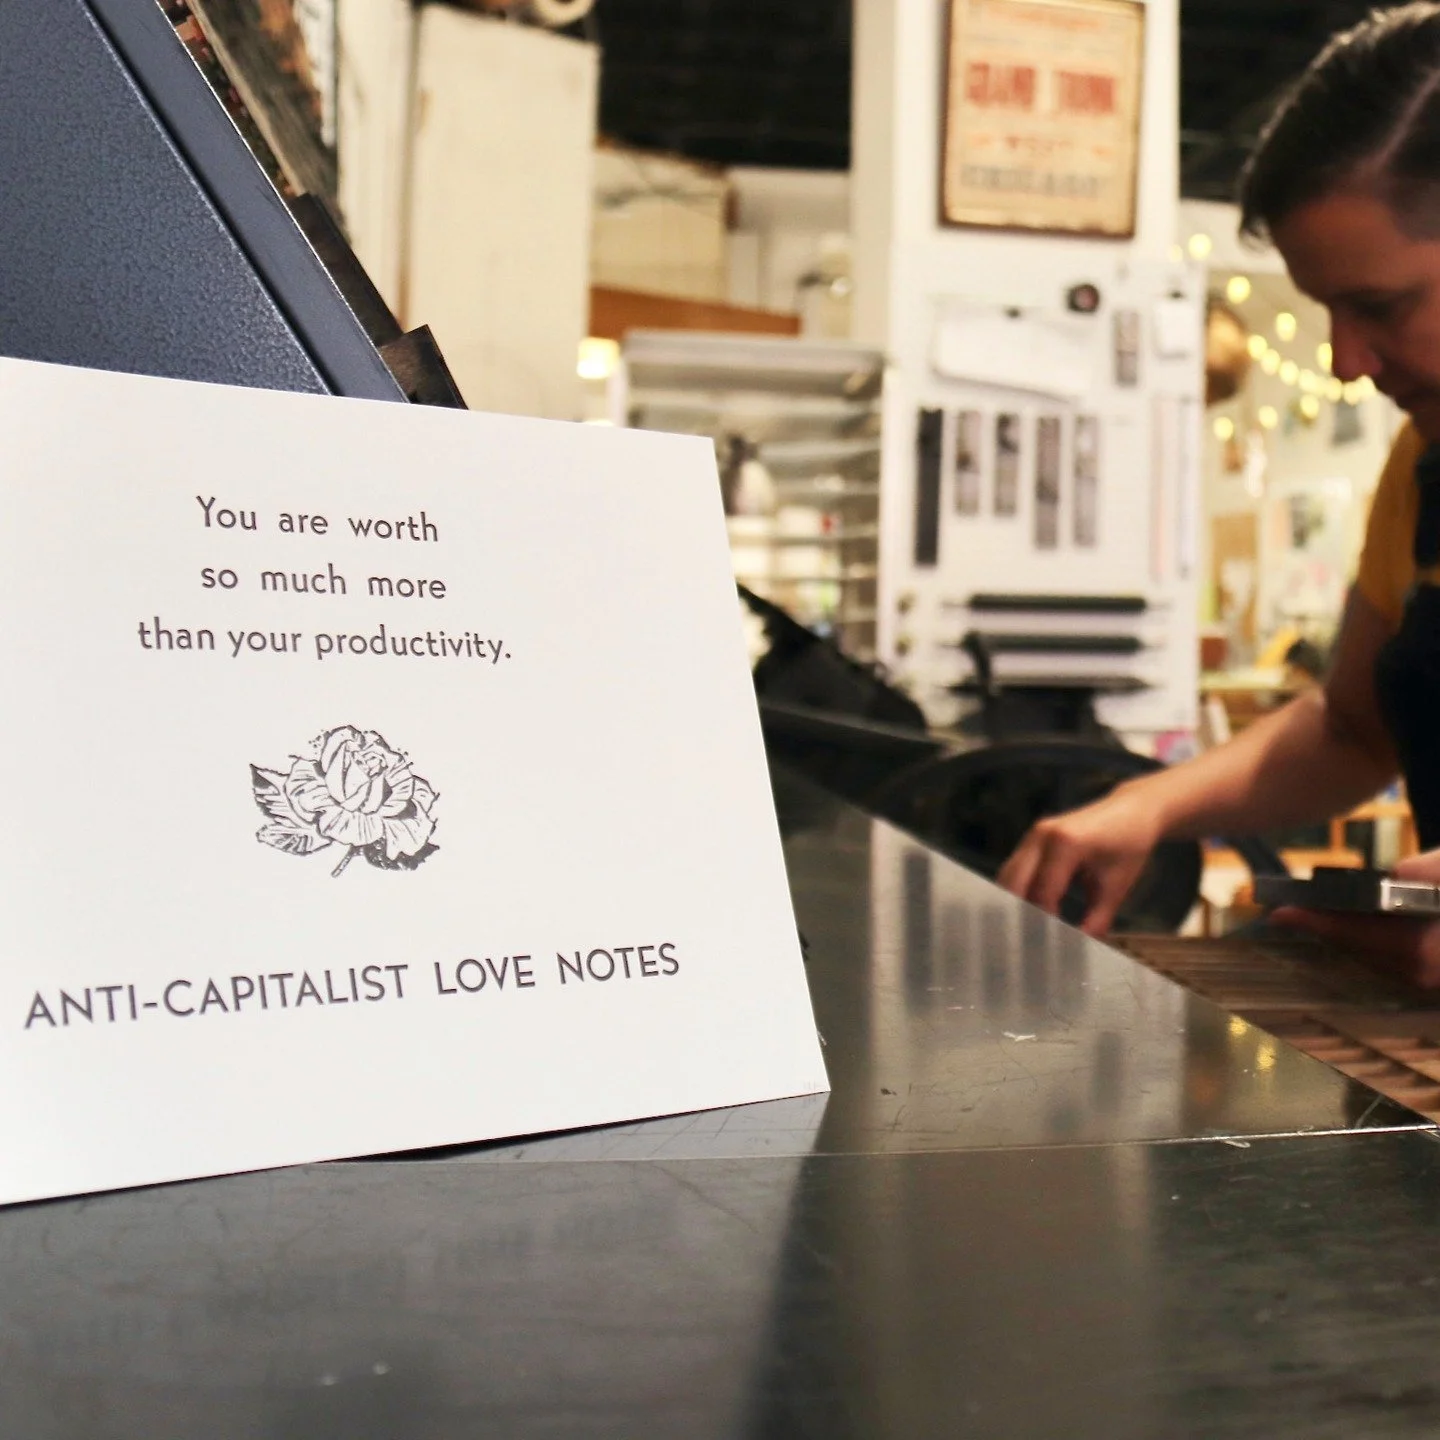 You are worth
so much more
than your productivity.
ANTI-CAPITALIST LOVE NOTES
GRAND TRUNK
WEST